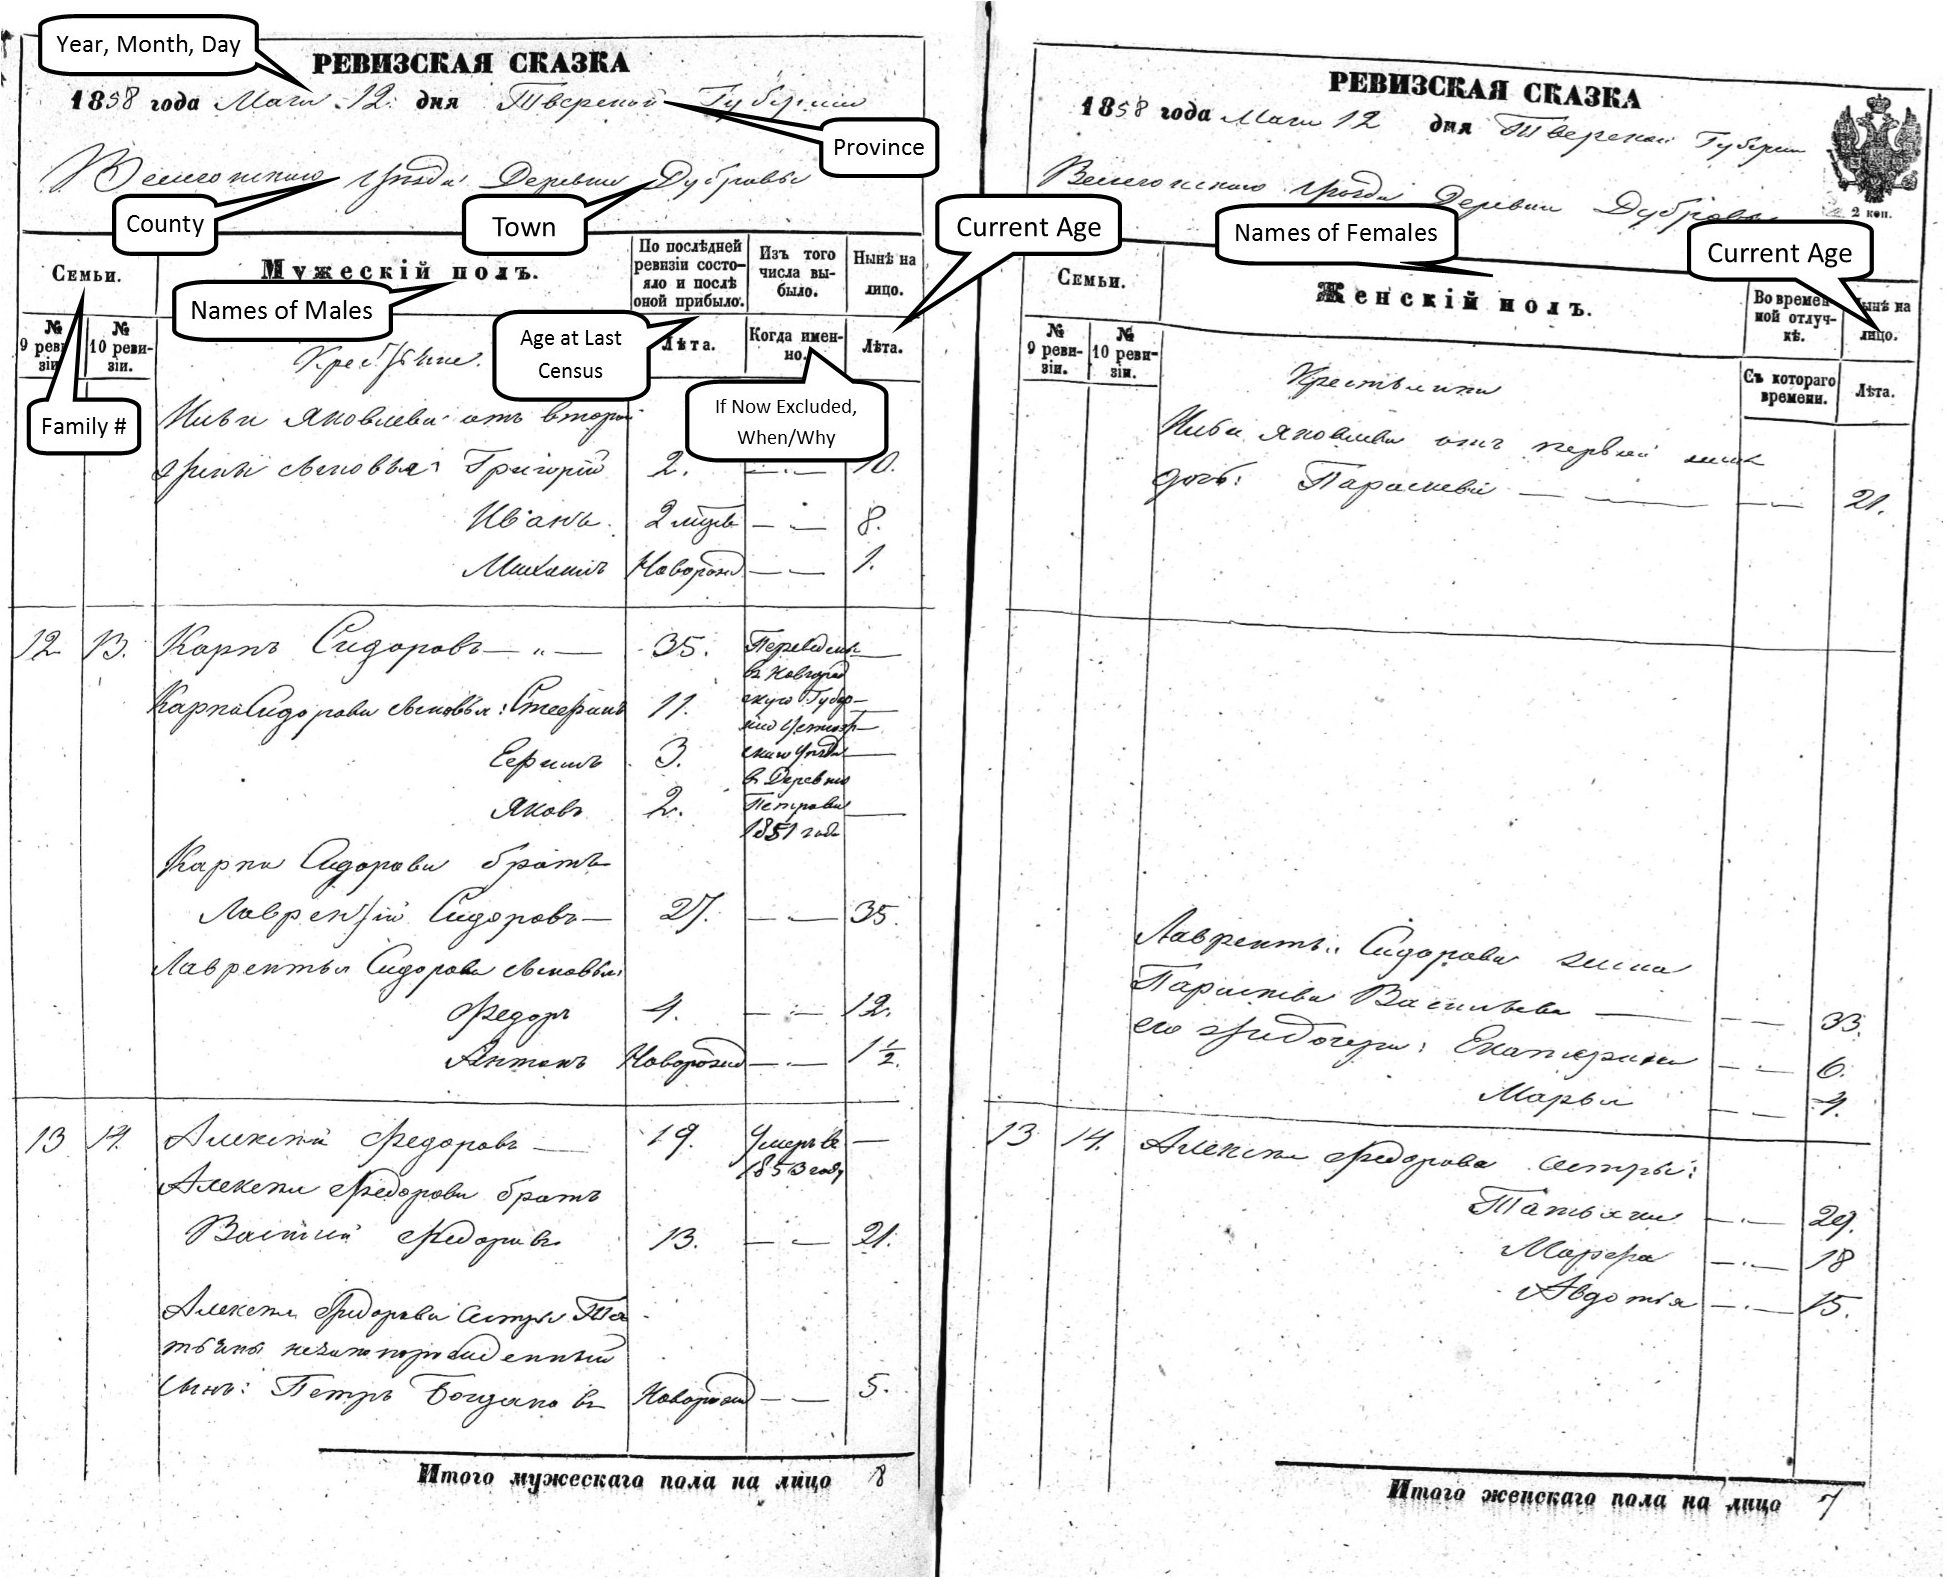 Year, Month, Day
РЕВИЗСКАЯ СКАЗКА
1858 года Маия 12. дня Тверской Губернии
Province
Весьегонскаго Уѣзда Деревни Дубровы
County
Town
Семьи.
Мужескій полъ.
По послѣдней ревизіи состо-
яло и послѣ
оной прибыло.
Изъ того
числа вы-
было.
Нынѣ на
лицо.
Names of Males
№
9 реви-
зіи.
№
10 реви-
зіи.
Age at Last
Census
Лѣта.
Когда имен-
но.
Лѣта.
Family #
If Now Excluded,
When/Why
Крестьяне.
Ильи Яковлева отъ второй
жены сыновья: Григорій 2. 10.
Иванъ. 8.
Михаилъ Новорожд 1.
12 13. Карпъ Сидоровъ 35. Переведены
въ Новгород
скую Губер-
нію
скаго Уѣзда
въ Деревню
Петрово
1851 года
Карпа Сидорова сыновья: Степанъ 11.
Ефимъ 3.
Яковъ 2.
Карпа Сидорова братъ
Лаврентій Сидоровъ 27. 35.
Лаврентья Сидорова сыновья:
Федоръ 4. 12.
Антонъ Новорожд 1½.
13 14. Алексѣй Федоровъ 19. Умеръ въ
1853 году
Алексѣя Федорова братъ
Василій Федоровъ 13. 21.
Алексѣя Федорова сестры Та
тьяны незаконорожденный
сынъ: Петръ Богдановъ Новорожд 5.
Итого мужескаго пола на лицо 8
РЕВИЗСКАЯ СКАЗКА
1858 года Маия 12 дня Тверской Губернии
Весьегонскаго Уѣзда Деревни Дубровы
2 коп.
Current Age
Names of Females
Current Age
Семьи.
Женскій полъ.
Во времен-
ной отлуч-
кѣ.
Нынѣ на
лицо.
№
9 реви-
зіи.
№
10 реви-
зіи.
Съ котораго
времени.
Лѣта.
Крестьянки
Ильи Яковлева отъ первой жены
дочь: Параскевія 21.
Лаврентья Сидорова жена
Параскева Васильева 33.
его дочери: Екатерина 6.
Марья 4.
13 14. Алексѣя Федорова сестры:
Татьяна 29.
Марфа 18
Авдотья 15.
Итого женскаго пола на лицо 7